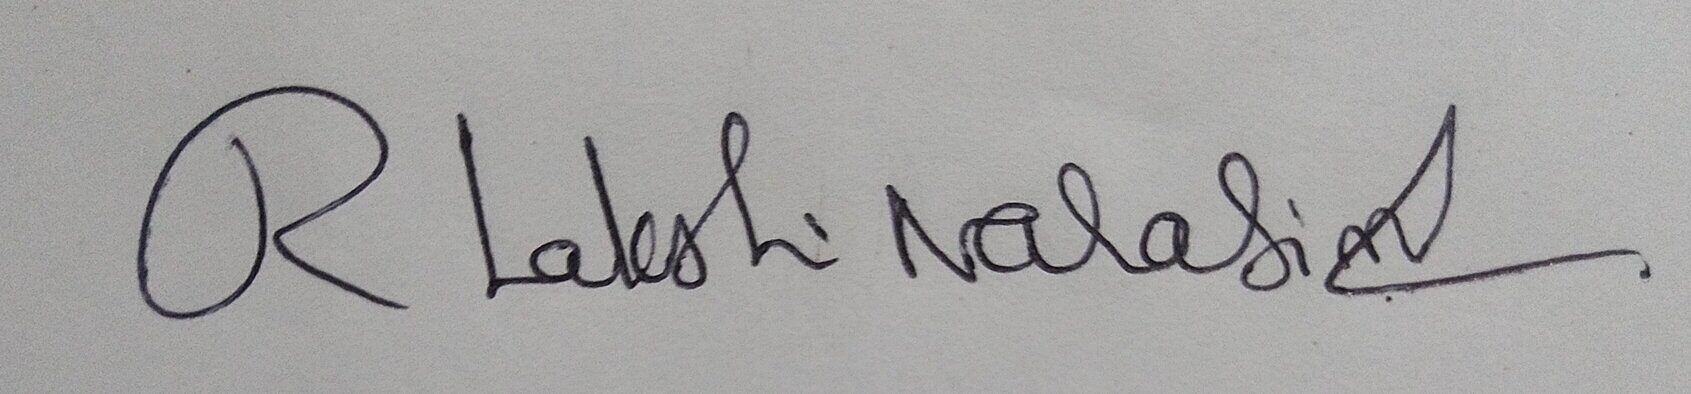 R Lakshi Narasi